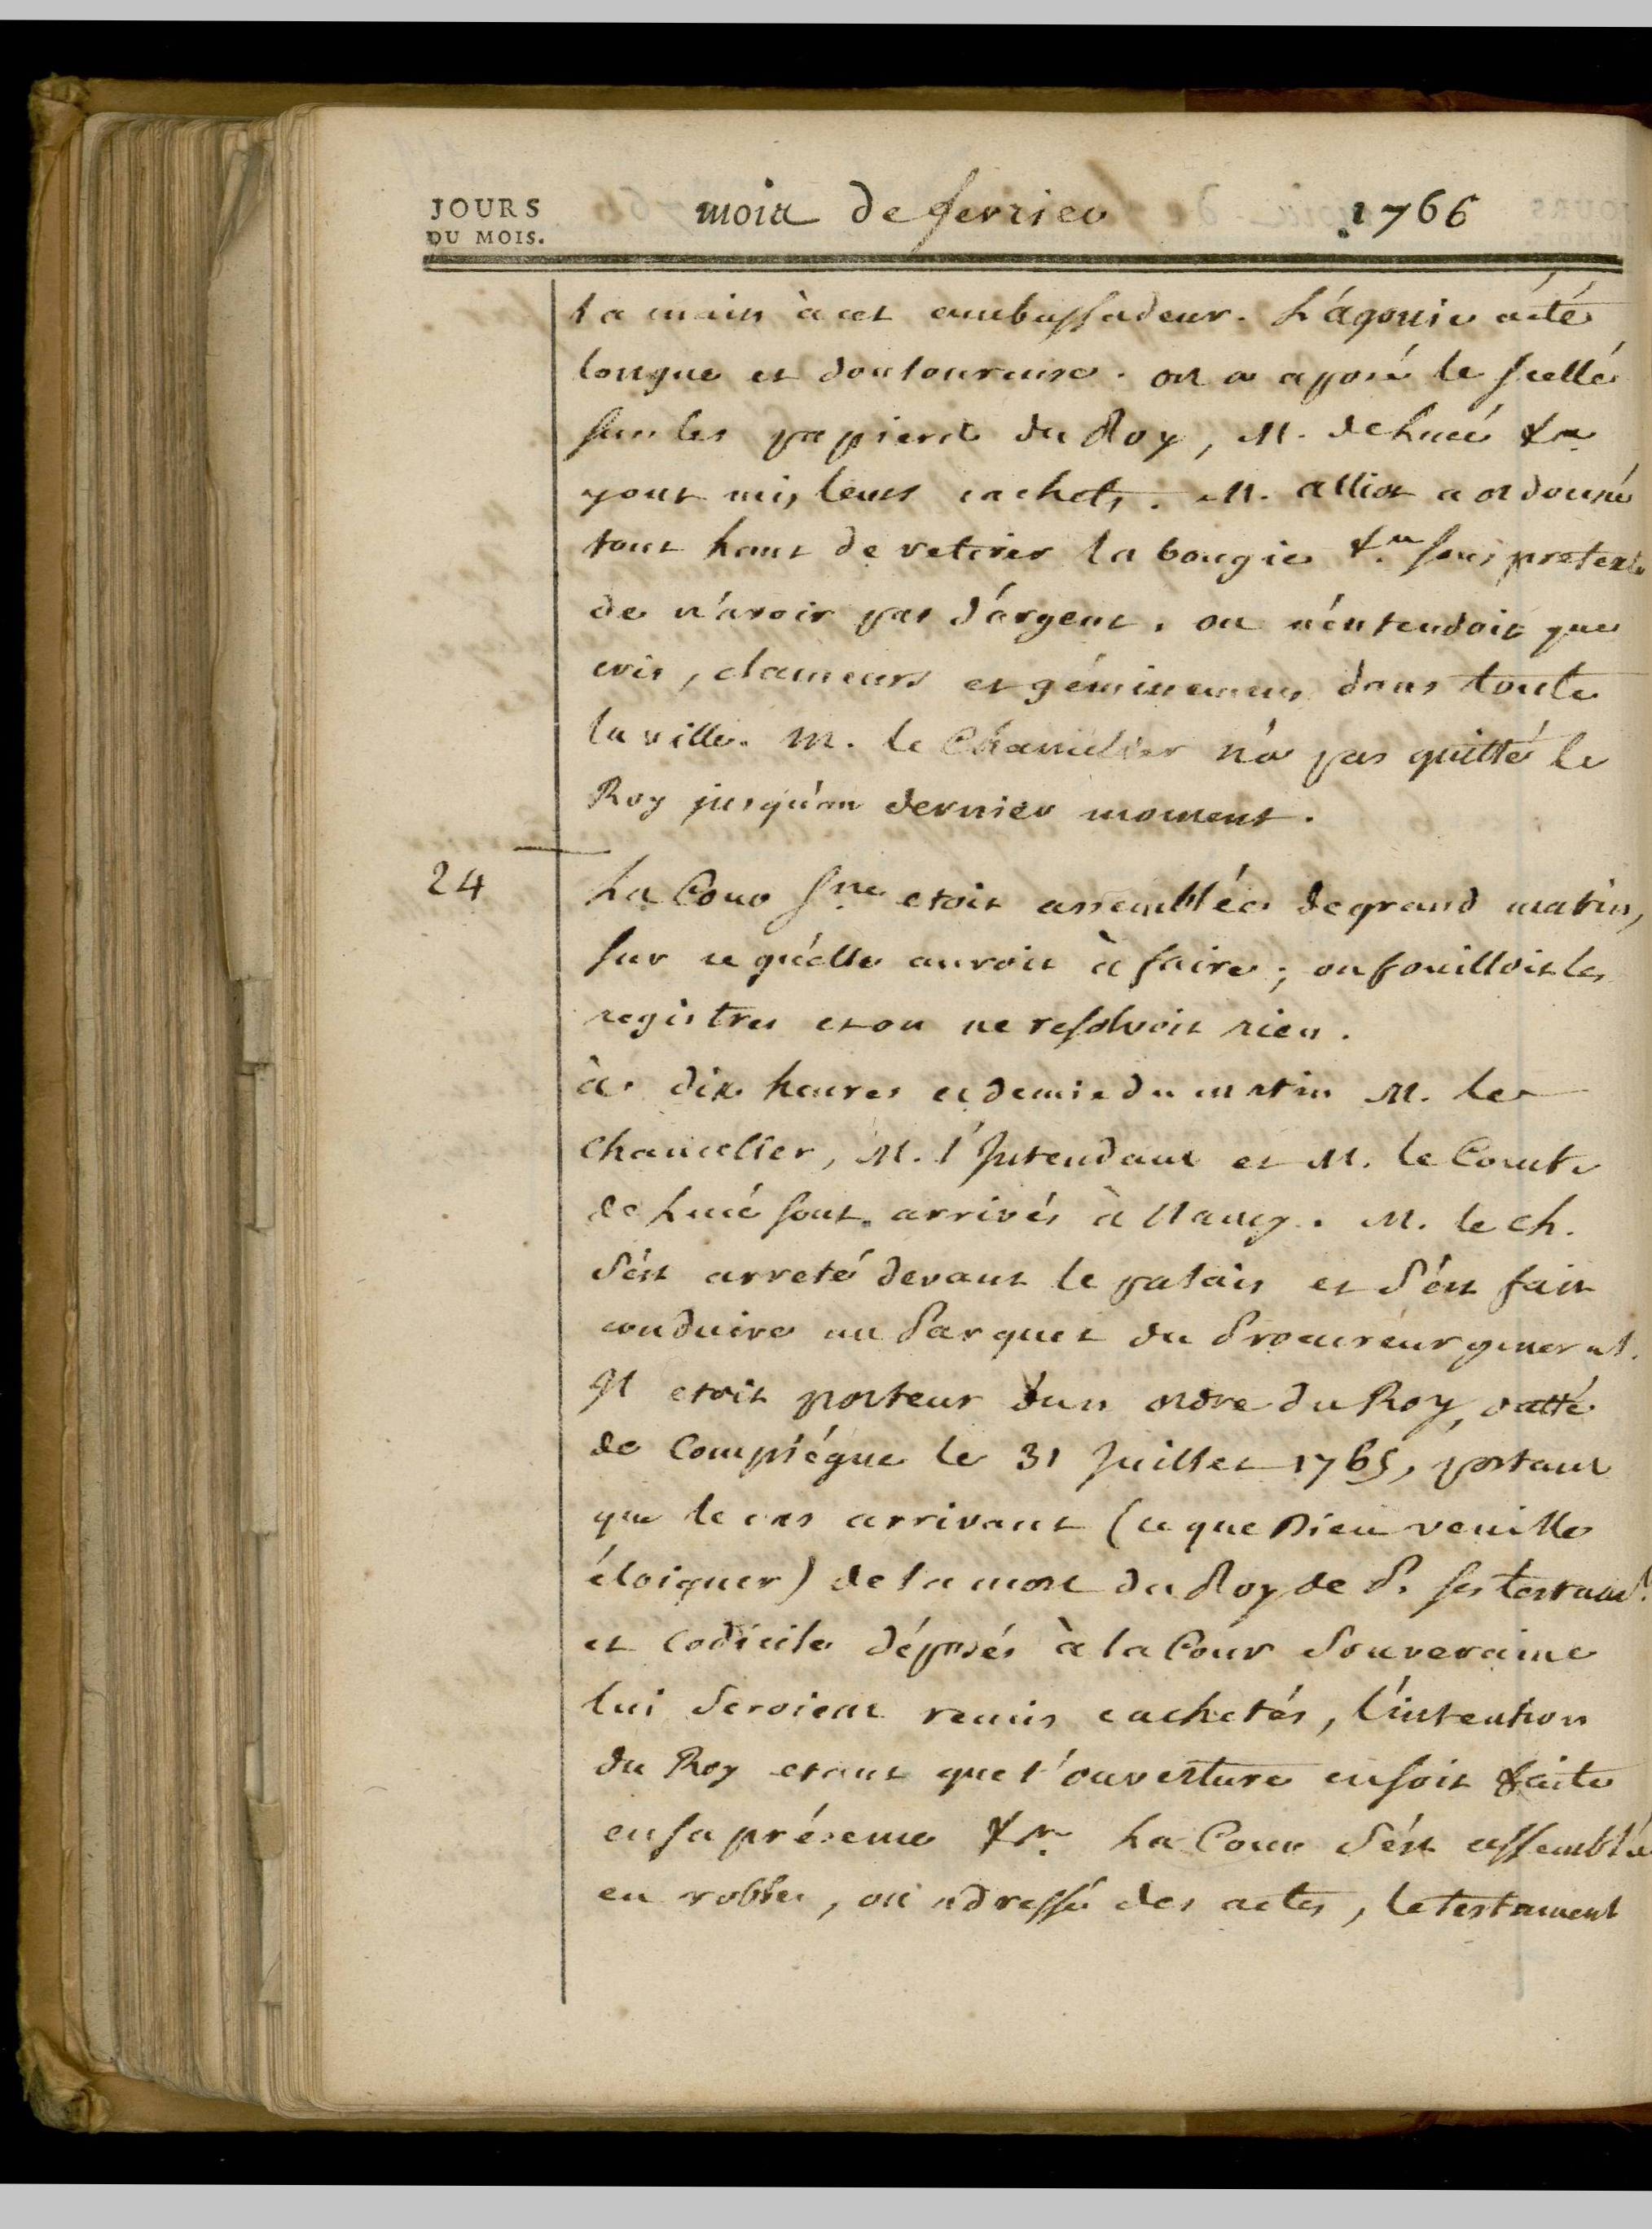 JOURS
DU MOIS.
mois de fevrier 1766
la main à cet ambassadeur. L'ágonie a été
longue et douloureuse. on a apposé le scellé
sur les papiers du Roy, M. de Lucé &a
y ont mis leurs cachets. M. alliot a ordonné
tout haut de retirer la bougie &a sous pretexte
de n'avoir pas d'argent. on n'entendoit que
cris, clameurs et gémissemens dans toute
la ville. M. le Chancelier n'a pas quitté le
Roy jusqu'au dernier moment.
24
La Cour Sne etoit assemblée de grand matin,
sur ce qu'elle auroit à faire; on fouilloit les
registres et on ne resolvoit rien.
à dix heures et demie du matin M. le
Chancelier, M. l'Intendant et M. le Comte
de Lucé sont arrivés à Nancy. M. le ch.
s'ést arreté devant le palais et s'ést fait
conduire au Parquet du Procureur general.
Il etoit porteur d'un ordre du Roy, datté
de Compiégne le 31 Juillet 1765, portant
que le cas arrivant (ce que Dieu veuille
éloigner) de la mort du Roy de P. ses testamt.
et codicile déposés à la Cour Souveraine
lui seroient remis cachetés, l'intention
du Roy etant que l'ouverture en soit faite
en sa présence &a. La Cour s'ést assemblée
en robbes, on a dressé des actes, le testament